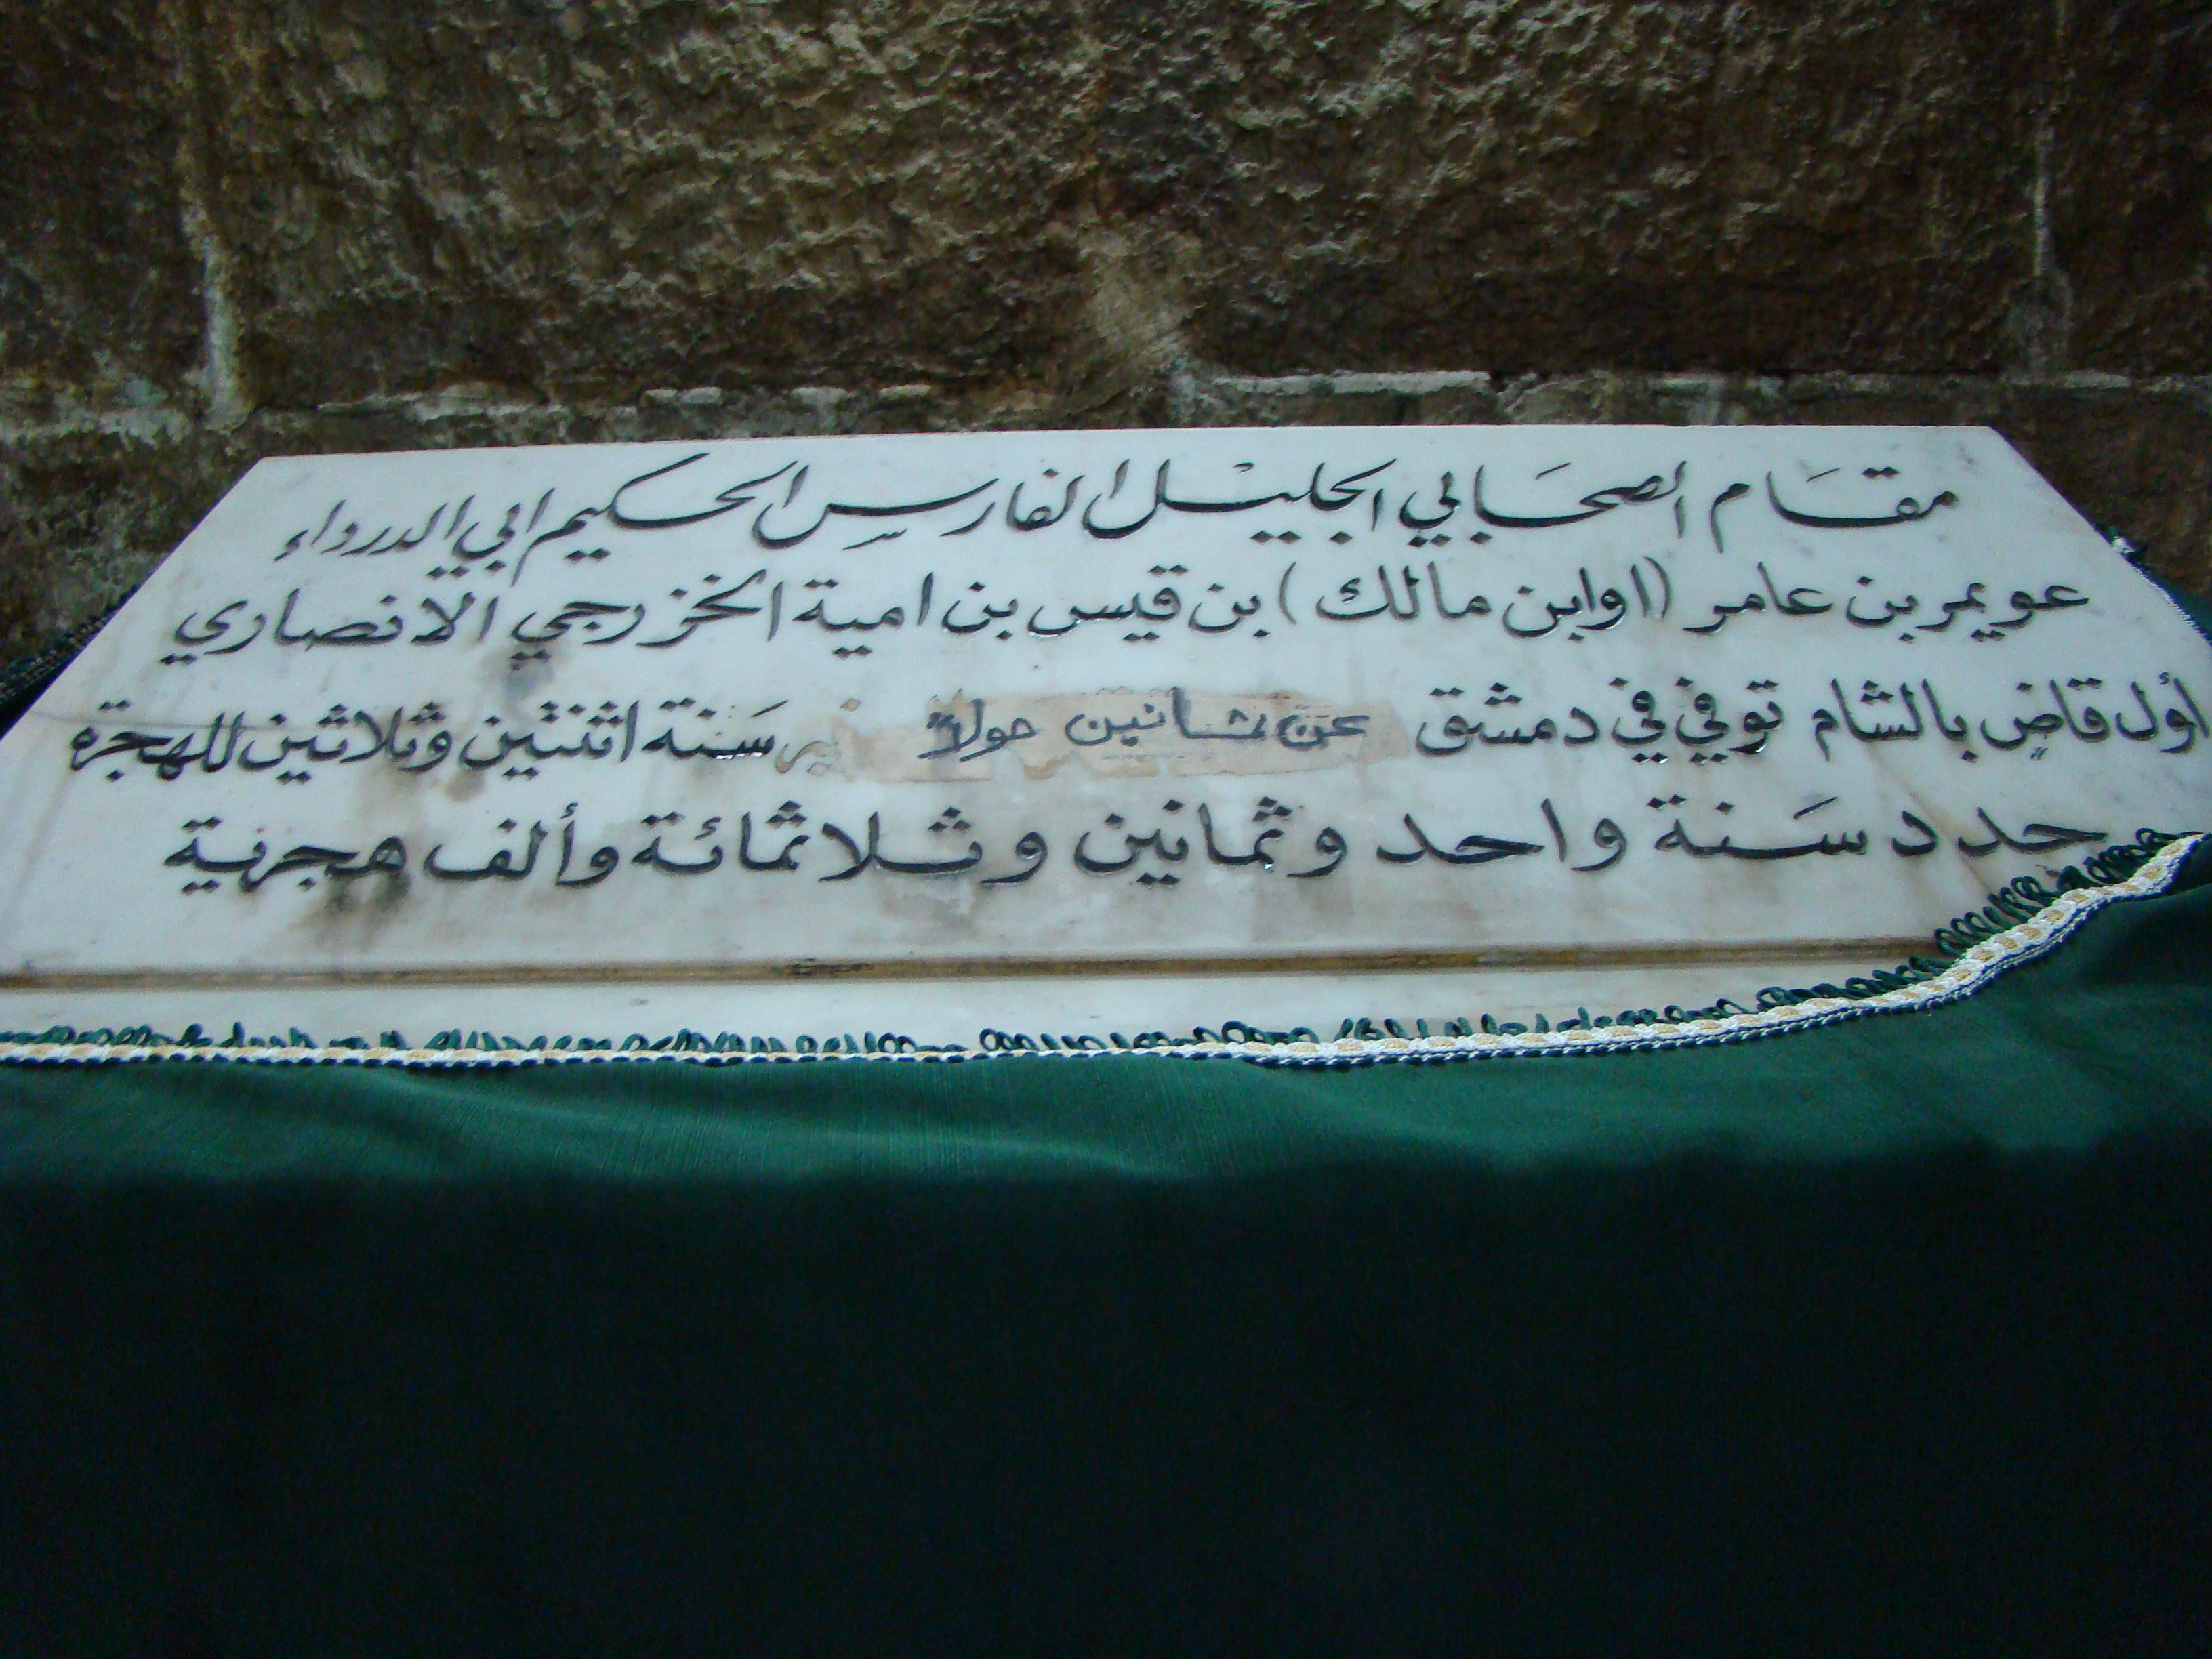 مقَام الصحَابي الجليْل الفارسِ الحكيم ابي الدرداء
عويمر بن عامر (او ابن مالك) بن قيس بن امية الخزرجي الانصاري
أول قاضٍ بالشام توفي في دمشق عَن ثمانين حولاً سَنة اثنتين وثلاثين للهجرة
حدد سَنة واحد وثمانين وثلاثمائة وألف هجرية